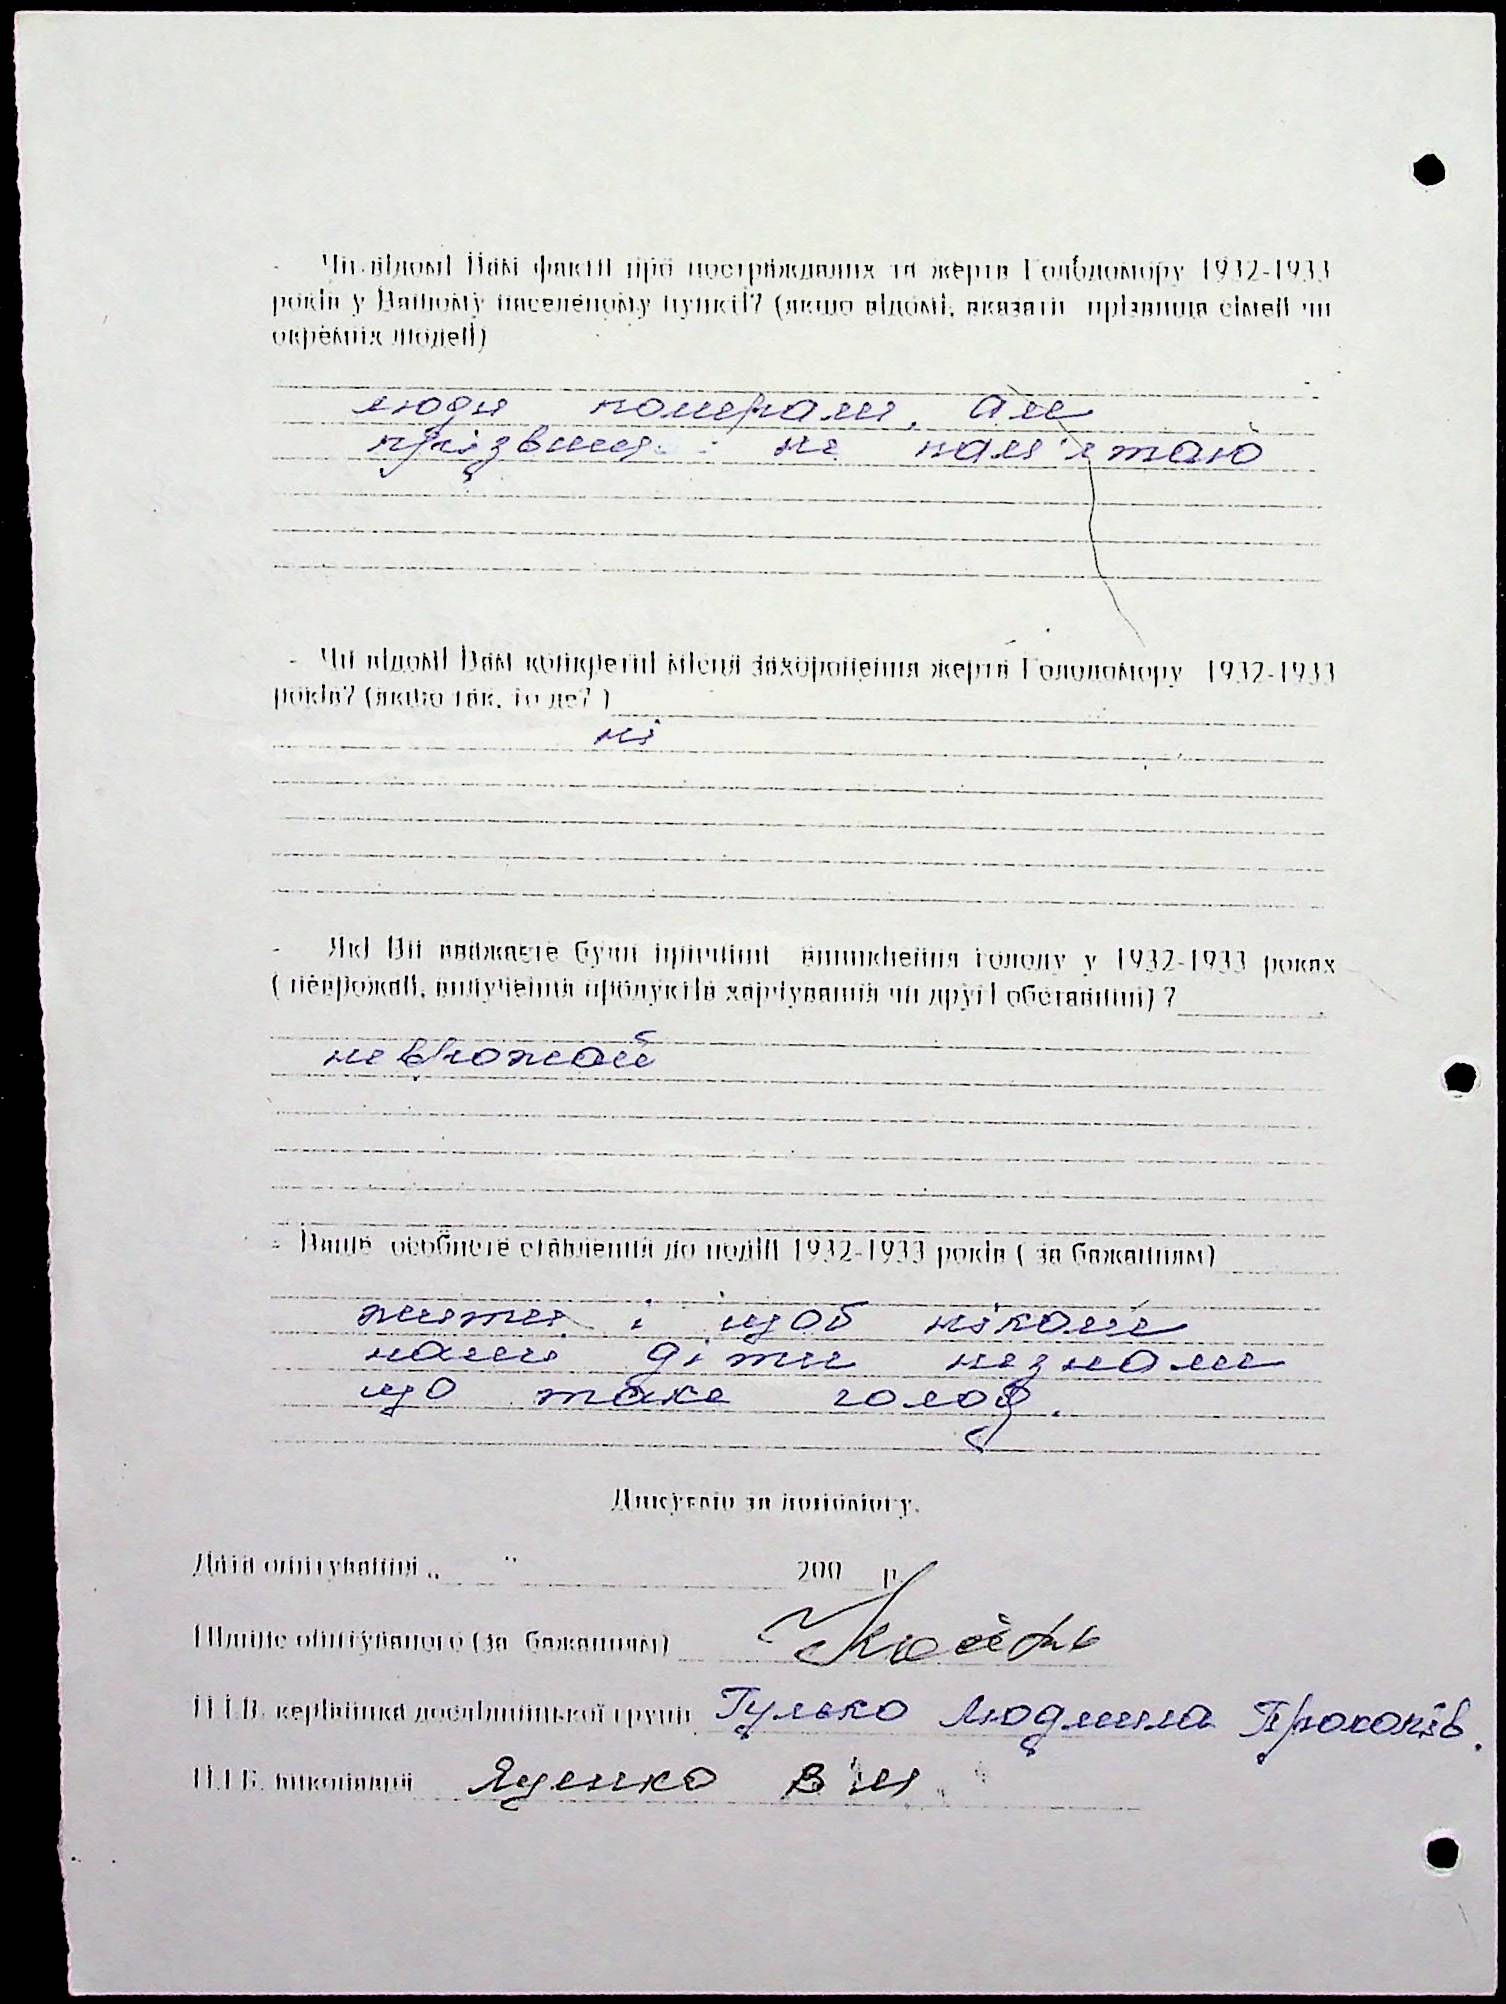 - Чи відомі Вам факти про постраждалих та жертв Голодомору 1932-1933
років у Вашому населеному пункті? (якщо відомі, вказати прізвища сімей чи
окремих людей)
люди помирали, але
прізвищ не пам'ятаю
- Чи відомі Вам конкретні місця захоронення жертв Голодомору 1932-1933
років? (якщо так, то де? )
ні
- Які Ви вважаєте були причини виникнення голоду у 1932-1933 роках
( неврожай, вилучення продуктів харчування чи другі обставини) ?
неврожай
- Ваше особисте ставлення до подій 1932-1933 років ( за бажанням)
життя і щоб ніколи
наши діти незнали
що таке голод.
Дякуємо за допомогу.
Дата опитування „ " 200 р.
Підпис опитуваного (за бажанням)
П.І.Б. керівника дослідницької групи Гулько Людмила Прокопів.
П.І.Б. виконавця Яценко В